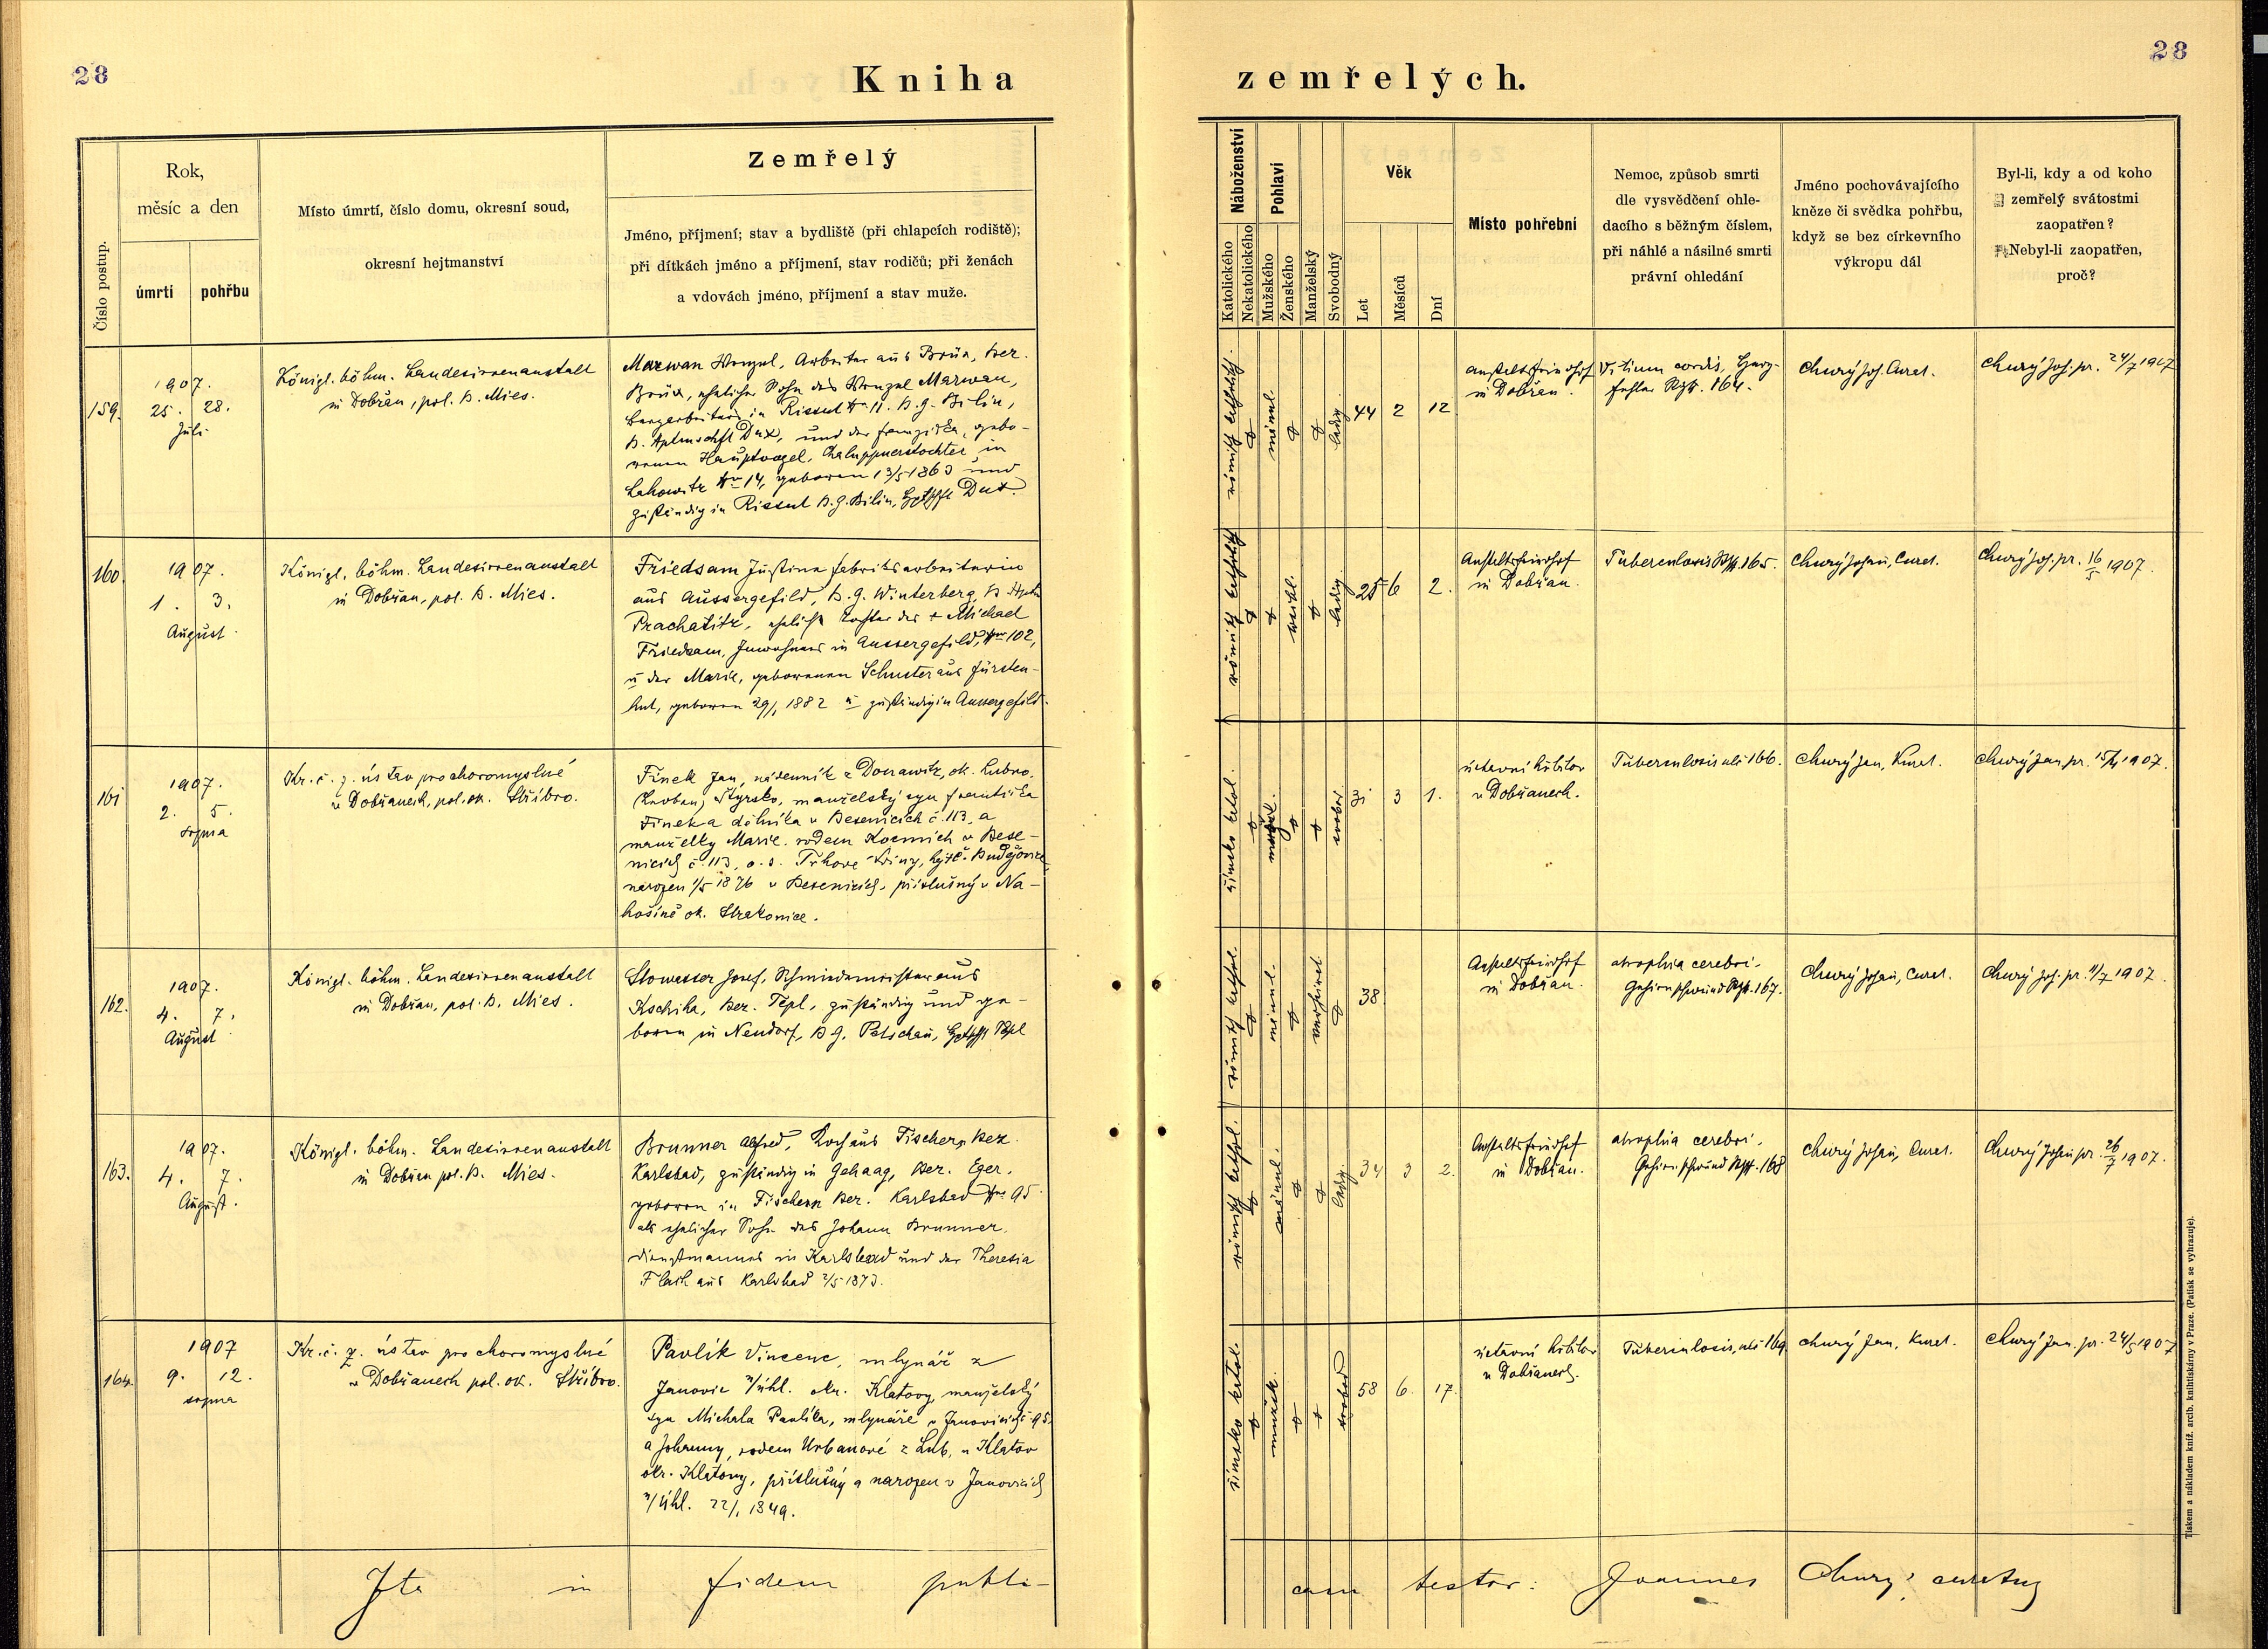 28
Kniha
zemřelých.
28
Číslo postup.
Rok,
měsíc a den
úmrtí
pohřbu
Místo úmrtí, číslo domu, okresní soud,
okresní hejtmanství
Zemřelý
Jméno, příjmení; stav a bydliště (při chlapcích rodiště);
při dítkách jméno a příjmení, stav rodičů; při ženách
a vdovách jméno, příjmení a stav muže.
Náboženství
Katolického
Nekatolického
Pohlaví
Mužského
Ženského
Manželský
Svobodný
Věk
Let
Měsíců
Dní
Místo pohřební
Nemoc, způsob smrti
dle vysvědčení ohle-
dacího s běžným číslem,
při náhlé a násilné smrti
právní ohledání
Jméno pochovávajícího
kněze či svědka pohřbu,
když se bez církevního
výkropu dál
Byl-li, kdy a od koho
zemřelý svátostmi
zaopatřen?
Nebyl-li zaopatřen,
proč?
159.
1907.
25. 28.
Juli.
Königl. böhm. Landesirrenanstalt
in Dobřan, pol. B. Mies.
Marwan Wenzel, Arbeiter aus Brüx, Bez.
Brüx, ehelicher Sohn des Wenzel Marwan,
Bergarbeiters in Rissut Nro 11. B. g. Bilin,
B. Hptmschft Dux, und der Franziska, gebo-
renen Hauptvogel, Chaluppnerstochter in
Lahowitz Nro 14, geboren 13/5 1863 und
zuständig in Rissut B. g. Bilin, Hptschft Dux.
römisch katholisch.
männl.
ledig
44 2 12
Anstaltsfriedhof
in Dobřan.
Vitium cordis, Herz-
fehler 164.
Churý Joh. Curat.
Churý Joh. pr. 24/7 1907
160.
1907.
1. 3.
August.
Königl. böhm. Landesirrenanstalt
in Dobřan, pol. B. Mies.
Friedsam Justina Fabriksarbeiterin
aus Aussergefild, B. g. Winterberg, B. Hptm
Prachatitz, eheliche Tochter des + Michael
Friedsam, Inwohners in Aussergefild, Nro 102,
u der Marie, geborenen Schuster aus Fürsten-
hut, geboren 29/1 1882 u zuständig in Aussergefild.
römisch katholisch
weibl.
ledig
25 6 2.
Anstaltsfriedhof
in Dobřan.
Tuberculosis 165.
Churý Johan, Curat.
Churý Joh. pr. 16/5 1907.
161
1907.
2. 5.
srpna
Kr. č. z. ústav pro choromyslné
v Dobřanech, pol. ok. Stříbro.
Finek Jan, nádenník z Donawitz, ok. Leoben,
Štyrsko, manželský syn Františka
Fineka dělníka v Besenicích č. 113, a
manželky Marie. rodem v Bese-
nicích č. 113, o. s. Trhové Sviny, hejt. Budějovice
narozen 1/5 1876 v Besenicích, příslušný v Na-
hošíně ok. Strakonice.
římsko katol.
svobod.
31 3 1.
ústavní hřbitov
v Dobřanech.
Tuberculosis 166.
Churý Jan, Kurat.
Churý Jan pr. 1907.
162.
1907.
4. 7.
August
Königl. böhm. Landesirrenanstalt
in Dobřan, pol. B. Mies.
Stowasser Josef, Schmiedemeister aus
Kschiha, Bez. Tepl, zuständig und ge-
boren in Neudorf, B. g. Petschau, Hptschft Tepl
römisch kathol.
männl.
verheirat
38.
Anstaltsfriedhof
in Dobřan.
atrophia cerebri.
Gehirnschwund 167.
Churý Johan, Curat.
Churý Joh. pr. 11/7 1907.
163.
1907.
4. 7.
August.
Königl. böhm. Landesirrenanstalt
in Dobřan pol. B. Mies.
Brunner Alfred, Koch aus Fischern, Bez.
Karlsbad, zuständig in Gehaag, Bez. Eger,
geboren in Fischern Bez. Karlsbad Nro 95
als ehelicher Sohn des Johann Brunner,
Dienstmannes in Karlsbad und der Theresia
Flach aus Karlsbad 2/5 1873.
römisch kathol.
männl.
ledig.
34 3 2.
Anstaltsfriedhof
in Dobřan.
atrophia cerebri.
Gehirnschwund 168
Churý Johan, Curat.
Churý Johan pr. 26/7 1907.
164.
1907
9. 12.
srpna
Kr. č. z. ústav pro choromyslné
v Dobřanech pol. ok. Stříbro.
Pavlík Vincenc, mlynář z
Janovic n/Úhl. okr. Klatovy, manželský
syn Michala Pavlíka, mlynáře v Janovicích č 95
a Johanny, rodem Urbanové z Lub, u Klatov
okr. Klatovy, příslušný a narozen v Janovicích
n/Úhl. 22/1 1849.
římsko katol.
mužsk.
svobod
58 6. 17.
ústavní hřbitov
v Dobřanech.
Tuberculosis, 169
Churý Jan, Kurat.
Churý Jan. pr. 24/5 1907
Ita in fidem publi-
cam testor: Joannes Churý, curatus
Tiskem a nákladem kníž. arcib. knihtiskárny v Praze. (Patisk se vyhrazuje).